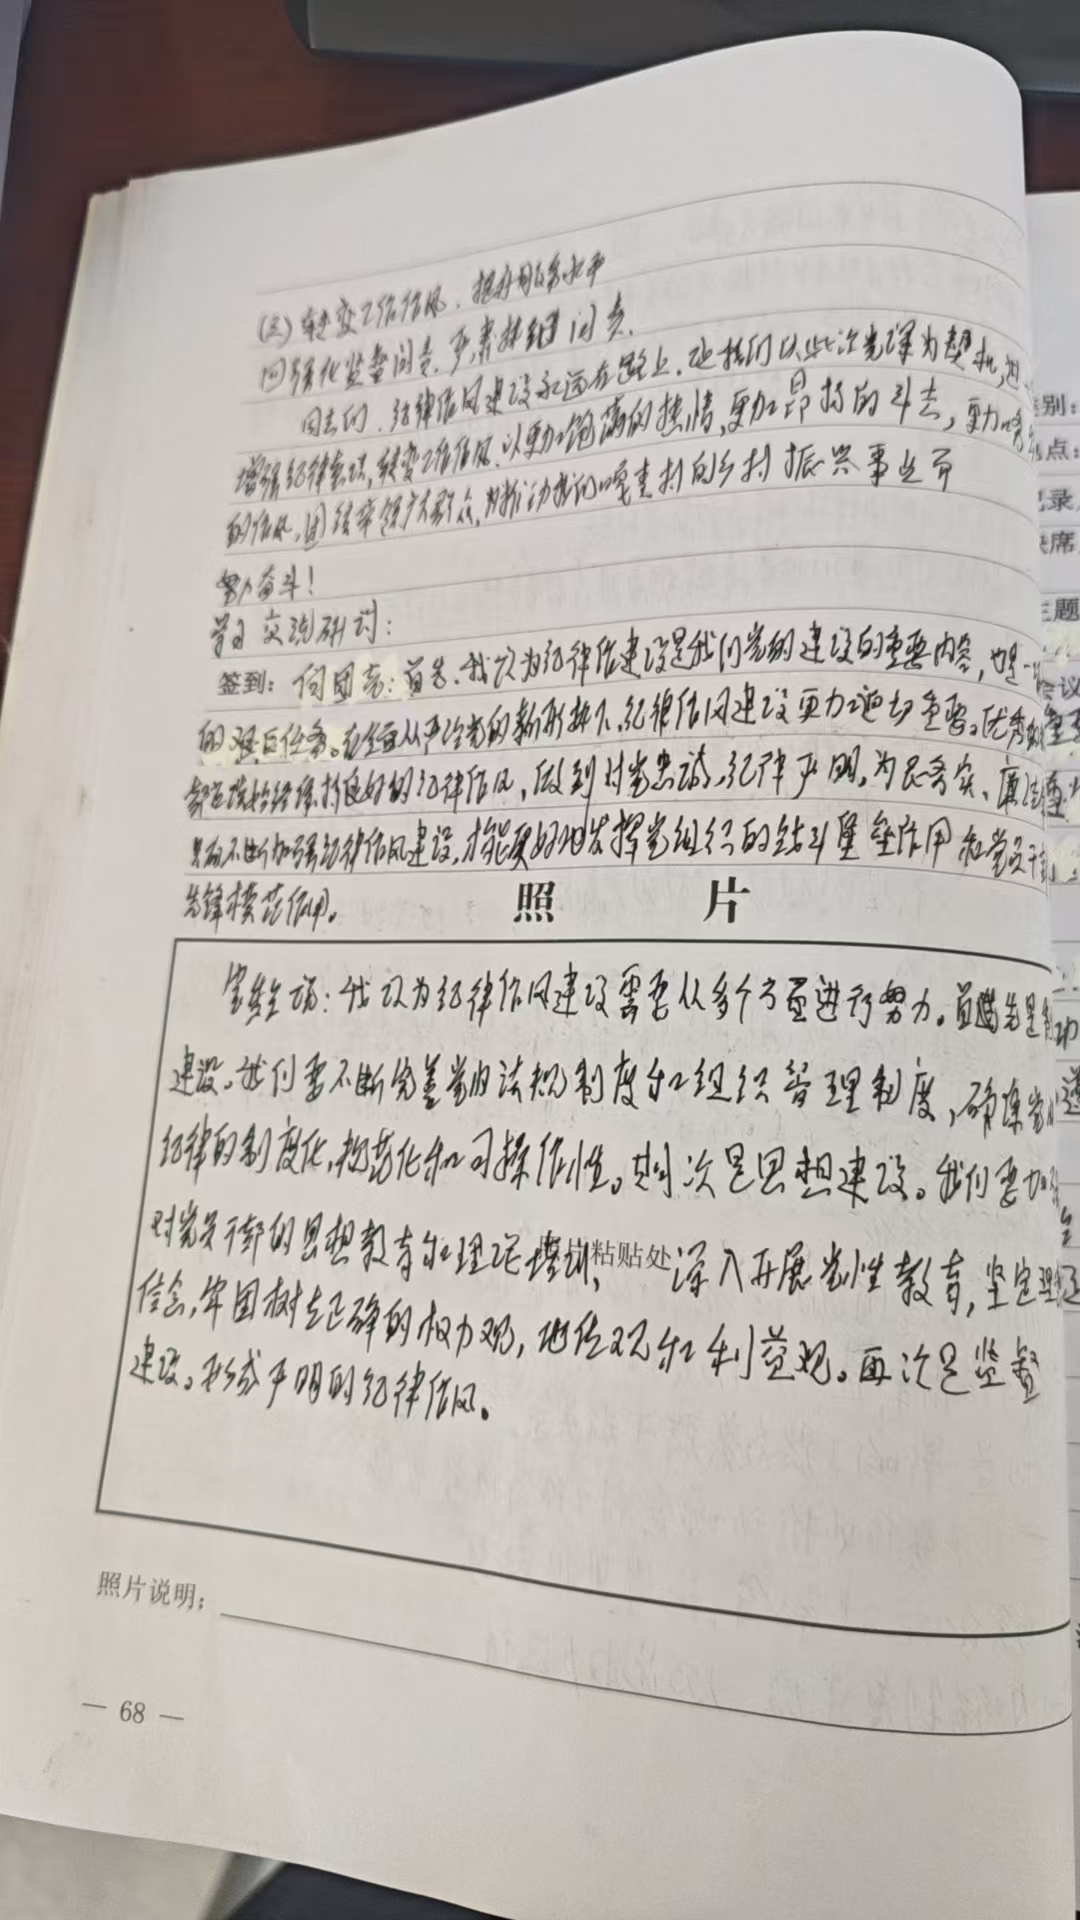 (三)转变工作作风，提升服务水平
四强化监督问责，严肃执纪问责。
同志们，纪律作风建设永远在路上，让我们以此次党课为契机，进
增强纪律意识，转变工作作风，以更加饱满的热情，更加昂扬的斗志，更加
的作风，团结率领广大群众，为推动我们嘎查村的乡村振兴事业而
努力奋斗！
学习交流研讨：
签到：何团亮：首先，我认为纪律作建设是我们党的建设的重要内容，也是一
的艰巨任务。在全面从严治党的新形势下，纪律作风建设更加迫切重要。优秀
部应该始终保持良好的纪律作风，做到对党忠诚，纪律严明，为民务实、廉洁
只有不断加强纪律作风建设，才能更好地发挥党组织的战斗堡垒作用和党员干
先锋模范作用。
照 片
我认为纪律作风建设需要从多个方面进行努力。首先是制
建设。我们要不断完善党内法规制度和组织管理制度，确保党
纪律的制度化，规范化和可操作性。其次是思想建设。我们要加强
对党员干部的思想教育和理论培训，粘贴处 深入开展党性教育，坚定理
信念，牢固树立正确的权力观，地位观和利益观。再次是监督
建设。形成严明的纪律作风。
照片说明：
— 68 —
别：
点：
录
席
主题
会议